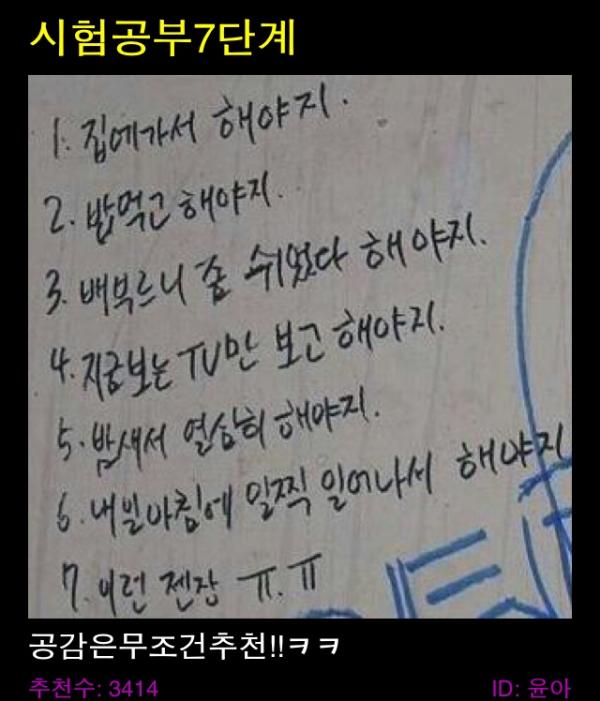 시험공부7단계
1. 집에가서 해야지.
2. 밥먹고 해야지.
3. 배부르니 좀 쉬었다 해야지.
4. 지금보는 TV만 보고 해야지.
5. 밤새서 열심히 해야지.
6. 내일아침에 일찍 일어나서 해야지
7. 이런 젠장 ㅠ.ㅠ
공감은무조건추천!!ㅋㅋ
추천수: 3414
ID: 윤아